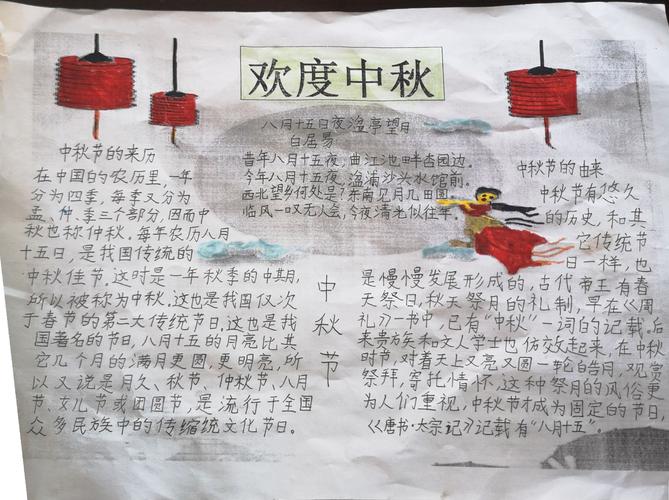 欢度中秋
八月十五日夜湓亭望月
白居易
昔年八月十五夜,曲江池畔杏园边。
今年八月十五夜,湓浦沙头水馆前。
西北望乡何处是?东南见月几回圆。
临风一叹无人会,今夜清光似往年。
中秋节的来历
在中国的农历里,一年
分为四季,每季又分为
孟、仲、季三个部分,因而中
秋也称仲秋。每年农历八月
十五日,是我国传统的
中秋佳节。这时是一年秋季的中期,
所以被称为中秋。这也是我国仅次
于春节的第二大传统节日。这也是我
国著名的节日,八月十五的月亮比其
它几个月的满月更圆,更明亮,所
以又说是月久、秋节、仲秋节、八月
节、女儿节或团圆节,是流行于全国
众多民族中的传缩统文化节日。
中秋节
中秋节的由来
中秋节有悠久
的历史,和其
它传统节
日一样,也
是慢慢发展形成的,古代帝王有春
天祭日,秋天祭月的礼制,早在《周
礼》一书中,已有“中秋”一词的记载。后
来贵族和文人学士也仿效起来,在中秋
时节,对着天上又亮又圆一轮的皓月,观赏
祭拜,寄托情怀,这种祭月的风俗更
为人们重视,中秋节才成为固定的节日,
《唐书·太宗记》记载有“八月十五”